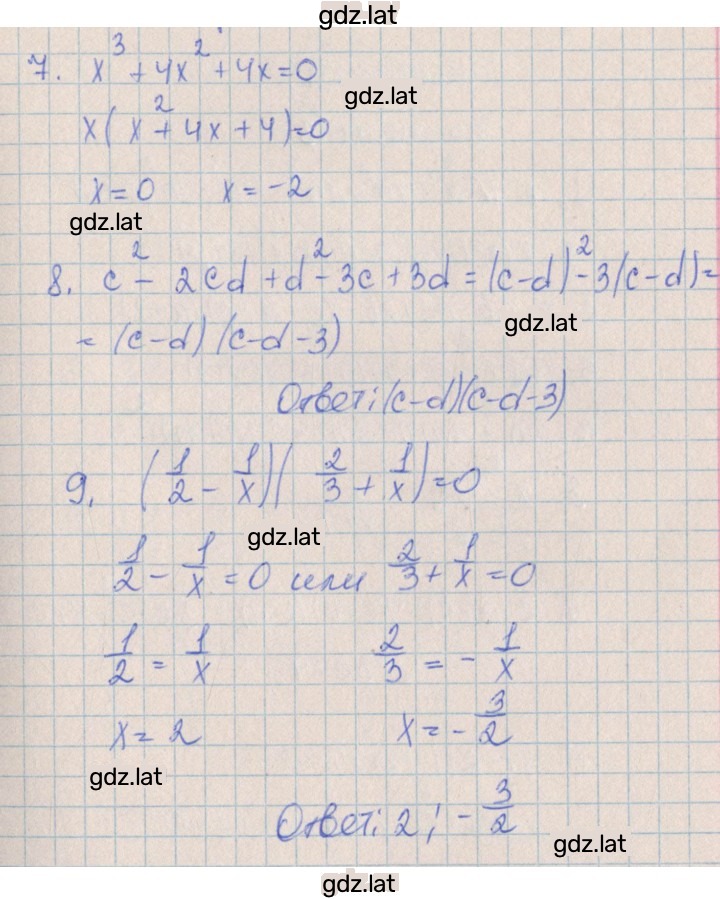 gdz.lat
7. x³ + 4x² + 4x = 0
gdz.lat
x(x² + 4x + 4) = 0
x = 0 x = -2
gdz.lat
8. c² - 2cd + d² - 3c + 3d = (c-d)² - 3(c-d) =
gdz.lat
= (c-d)(c-d-3)
Ответ: (c-d)(c-d-3)
9. (1/2 - 1/x)(2/3 + 1/x) = 0
gdz.lat
1/2 - 1/x = 0 или 2/3 + 1/x = 0
1/2 = 1/x 2/3 = - 1/x
x = 2 x = - 3/2
gdz.lat
Ответ: 2; - 3/2
gdz.lat
gdz.lat